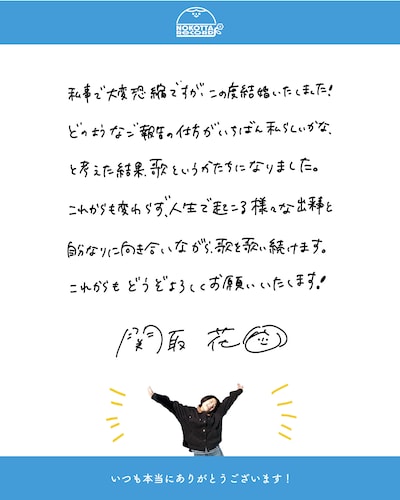 NOKOTTA
RECORDS
私事で大変恐縮ですが、この度結婚いたしました!
どのようなご報告の仕方がいちばん私らしいかな、
と考えた結果、歌というかたちになりました。
これからも変わらず、人生で起こる様々な出来事と
自分なりに向き合いながら、歌を歌い続けます。
これからもどうぞよろしくお願いいたします!
関取 花
いつも本当にありがとうございます!